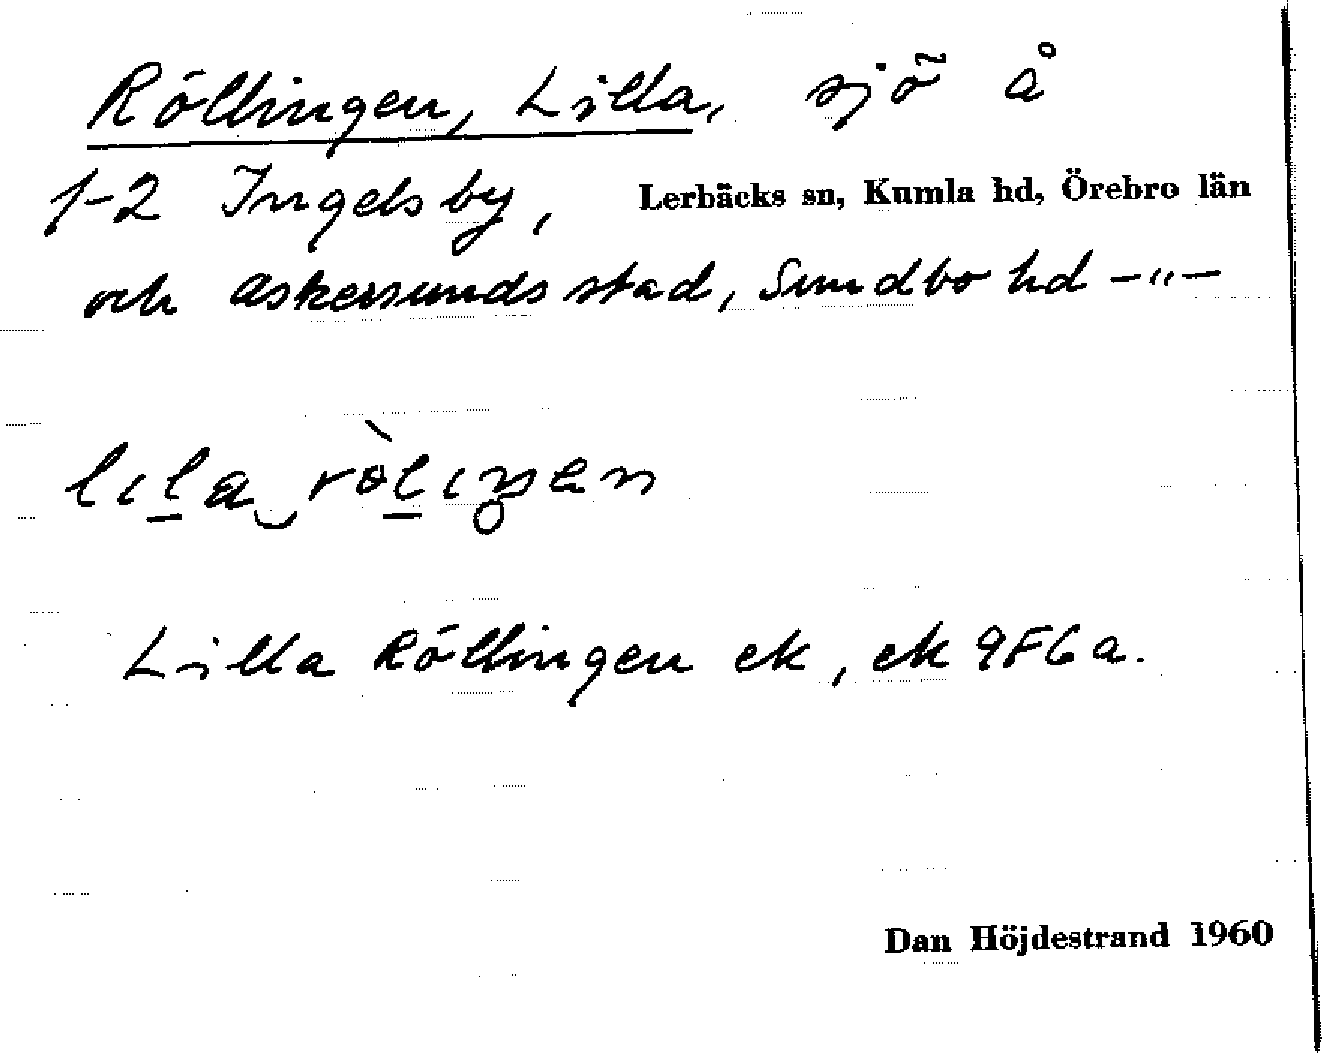 Röllingen, Lilla, sjö å
1-2 Ingelsby, Lerbäcks sn, Kumla hd, Örebro län
och Askersunds stad, Sundbo hd -"-
lıl̲a‿ròl̲ıŋ̥en
Lilla Röllingen ek, ek 9F6a.
Dan Höjdestrand 1960